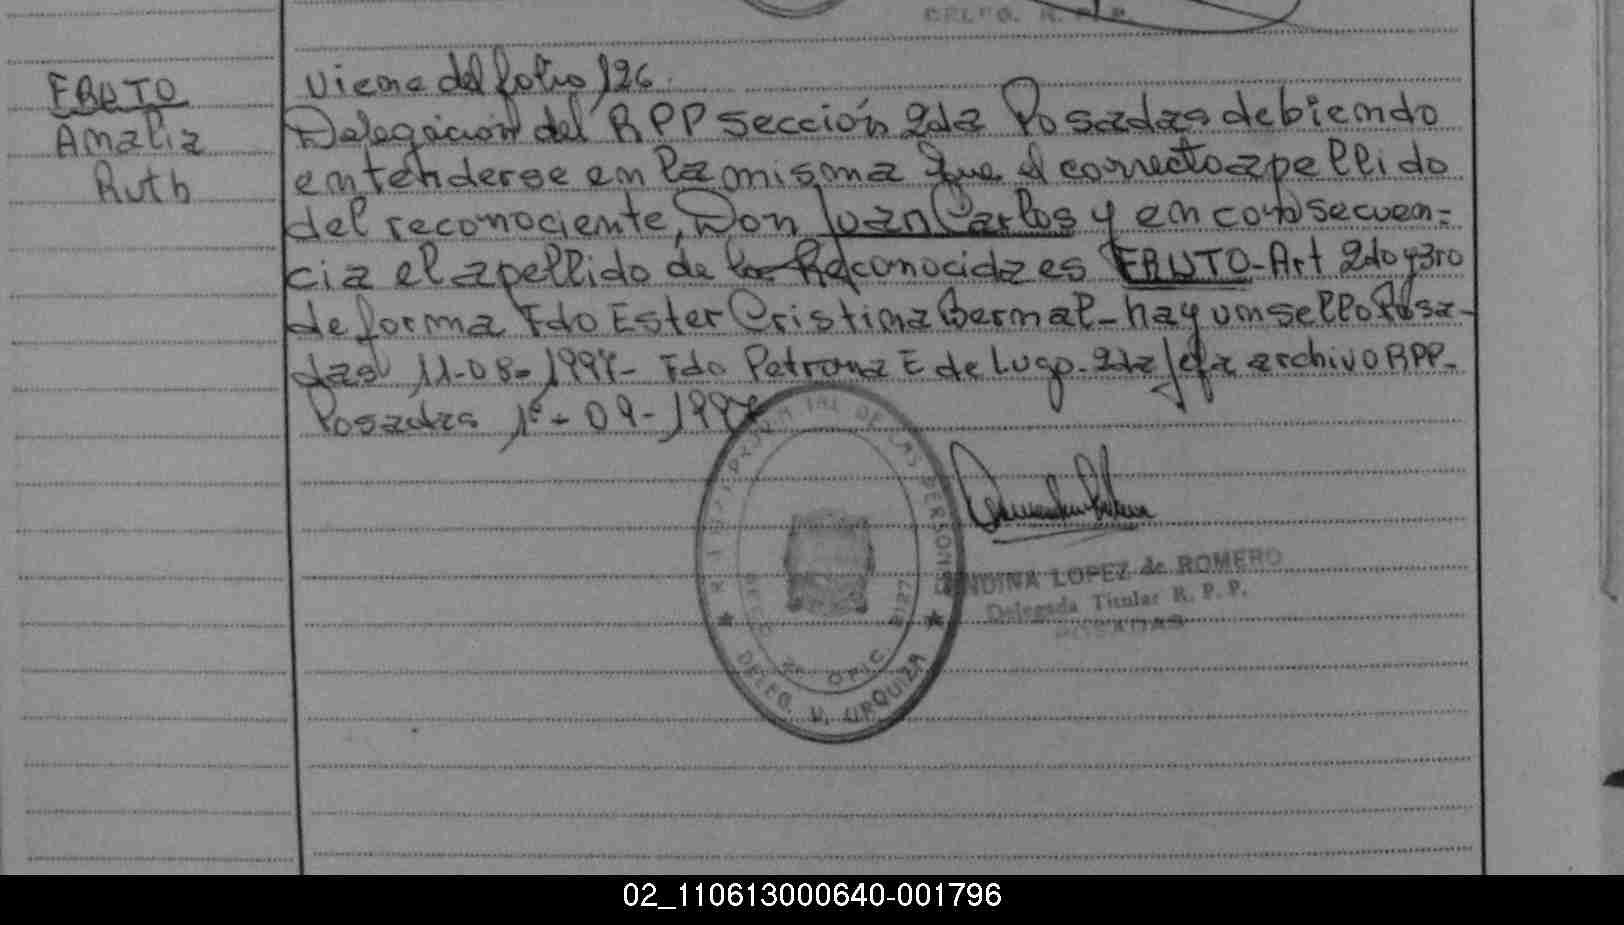 DELEG. R. P. P.
EBUTO
Amalia
Ruth
Viene del folio 126.
Delegación del RPP sección 2da Posadas debiendo
entenderse en la misma que el correcto apellido
del reconociente, Don Juan Carlos y en consecuen=
cia el apellido de la Reconocida es EBUTO-Art 2do y 3ro
de forma Fdo Ester Cristina Bernal-hay un sello Posa-
das 11-08-1997- Fdo Petrona E de Lugo-2da Jefa archivo RPP-
Posadas 1º-09-1997
PROVINCIAL DE LAS PERSONAS
DELEG. V. URQUIZA
OFIC.
LOPEZ de ROMERO
Delegada Titular R. P. P.
POSADAS
02_110613000640-001796